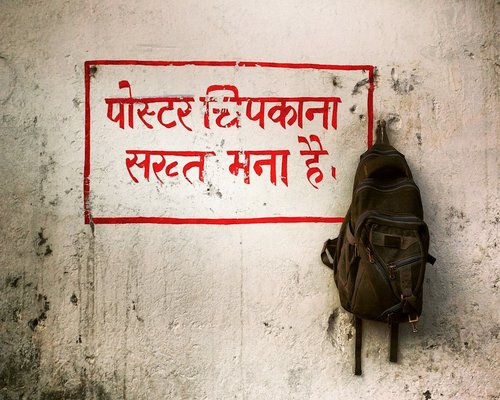 पोस्टर चिपकाना
सख्त मना है.